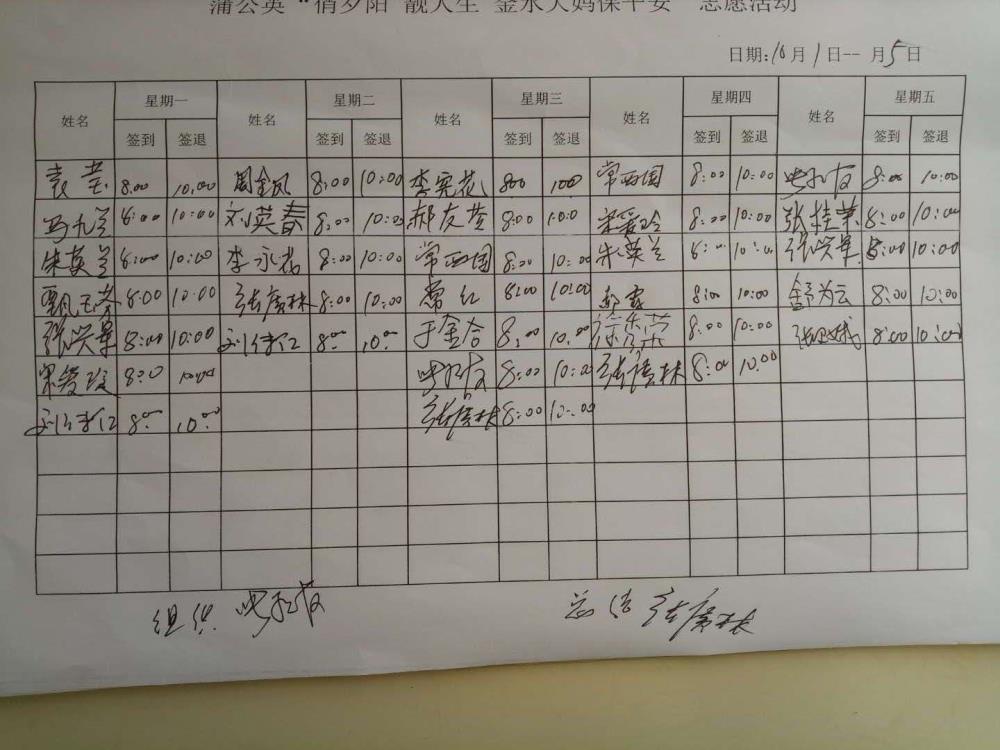 蒲公英“俏夕阳 靓人生 金水大妈保平安” 志愿活动
日期:10月1日-- 月5日
姓名 星期一 姓名 星期二 姓名 星期三 姓名 星期四 姓名 星期五
签到 签退 签到 签退 签到 签退 签到 签退 签到 签退
袁莹 8:00 10:00 周金凤 8:00 10:00 李宪花 800 1000 常西国 8:00 10:00 8:00 10:00
马九兰 8:00 10:00 刘英春 8:00 10:00 郝友莲 8:00 10:0 8:00 10:00 张桂苹 8:00 10:00
朱英兰 8:00 10:00 李永花 8:00 10:00 常西国 8:00 10:00 朱英兰 8:00 10:00 张兴军 8:00 10:00
8:00 10:00 张广林 8:00 10:00 常红 8:00 10:00 8:00 10:00 舒为云 8:00 10:00
张兴军 8:00 10:00 8:00 10:00 于金合 8:00 10:00 8:00 10:00 8:00 10:00
8:0 10:00 8:00 10:00 8:00 10:00
8:00 10:00 张广林 8:00 10:00
组织 总结 张广林